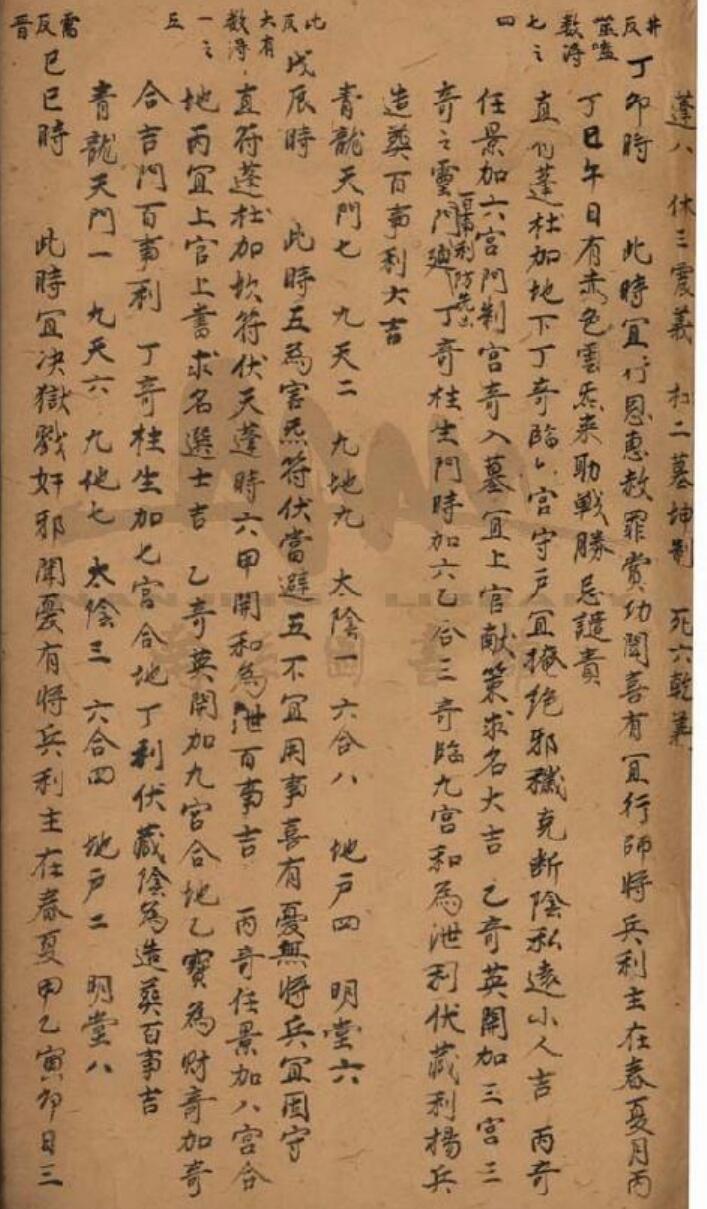 蓬八　休三震義　和二墓坤制　死六乾義
井反噬嗑数得七之四
丁卯時　此時宜行恩惠赦罪賞功聞喜有宜行師将兵利主在春夏月丙
丁巳午日有赤色雲炁来助戰勝忌譴責
直符蓬杜加地下丁奇臨六宮守戶宜掩绝邪穢克断陰私遠小人吉　丙奇
任景加六宮門制宮奇入墓宜上官献策求名大吉　乙奇英開加三宮三
奇之靈門百事利防先出丁奇柱生門時加六乙合三奇臨九宮和為泄利伏藏利揚兵
造葬百事利大吉
青龍天門七　九天二　九地九　太陰一　六合八　地戶四　明堂六
比反大有数得一之五
戊辰時　此時五為害炁符伏當避五不宜用事喜有憂無将兵宜固守
直符蓬杜加坎符伏天蓬時六甲開和為泄百事吉　丙奇任景加八宮合
地丙宜上官上書求名選士吉　乙奇英開加九宮合地乙寶為財奇加奇
合吉門百事利　丁奇柱生加七宮合地丁利伏藏陰為造葬百事吉
青龍天門一　九天六　九地七　太陰三　六合四　地戶二　明堂八
需反晋
己巳時　此時宜决獄戮奸邪聞憂有将兵利主在春夏甲乙寅卯日三